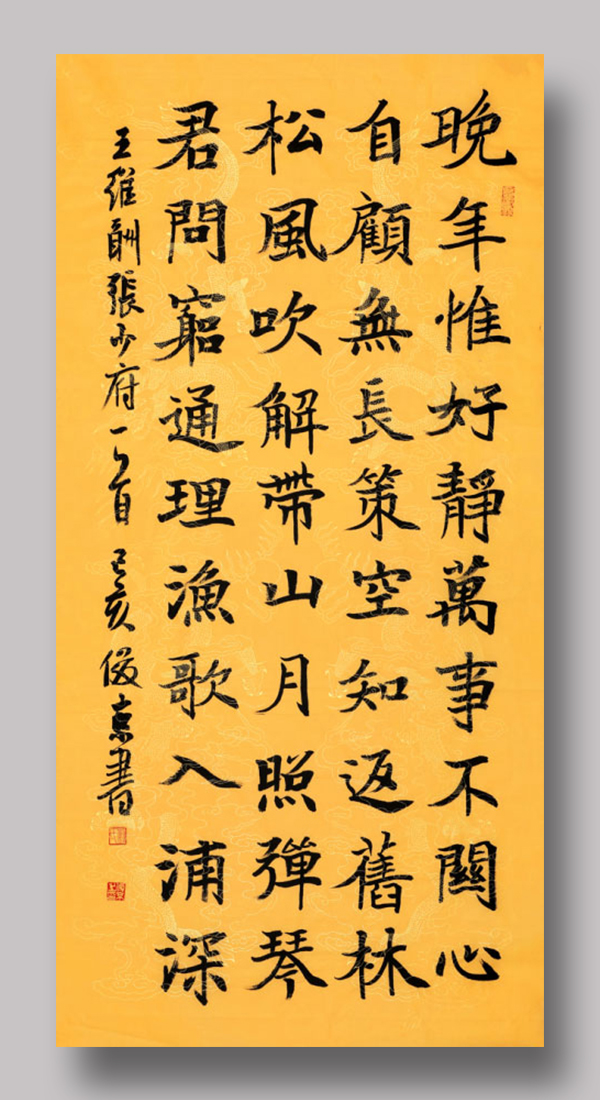 晚年惟好靜萬事不關心
自顧無長策空知返舊林
松風吹解帶山月照彈琴
君問窮通理漁歌入浦深
王維酬張少府一首 己亥 俊京書